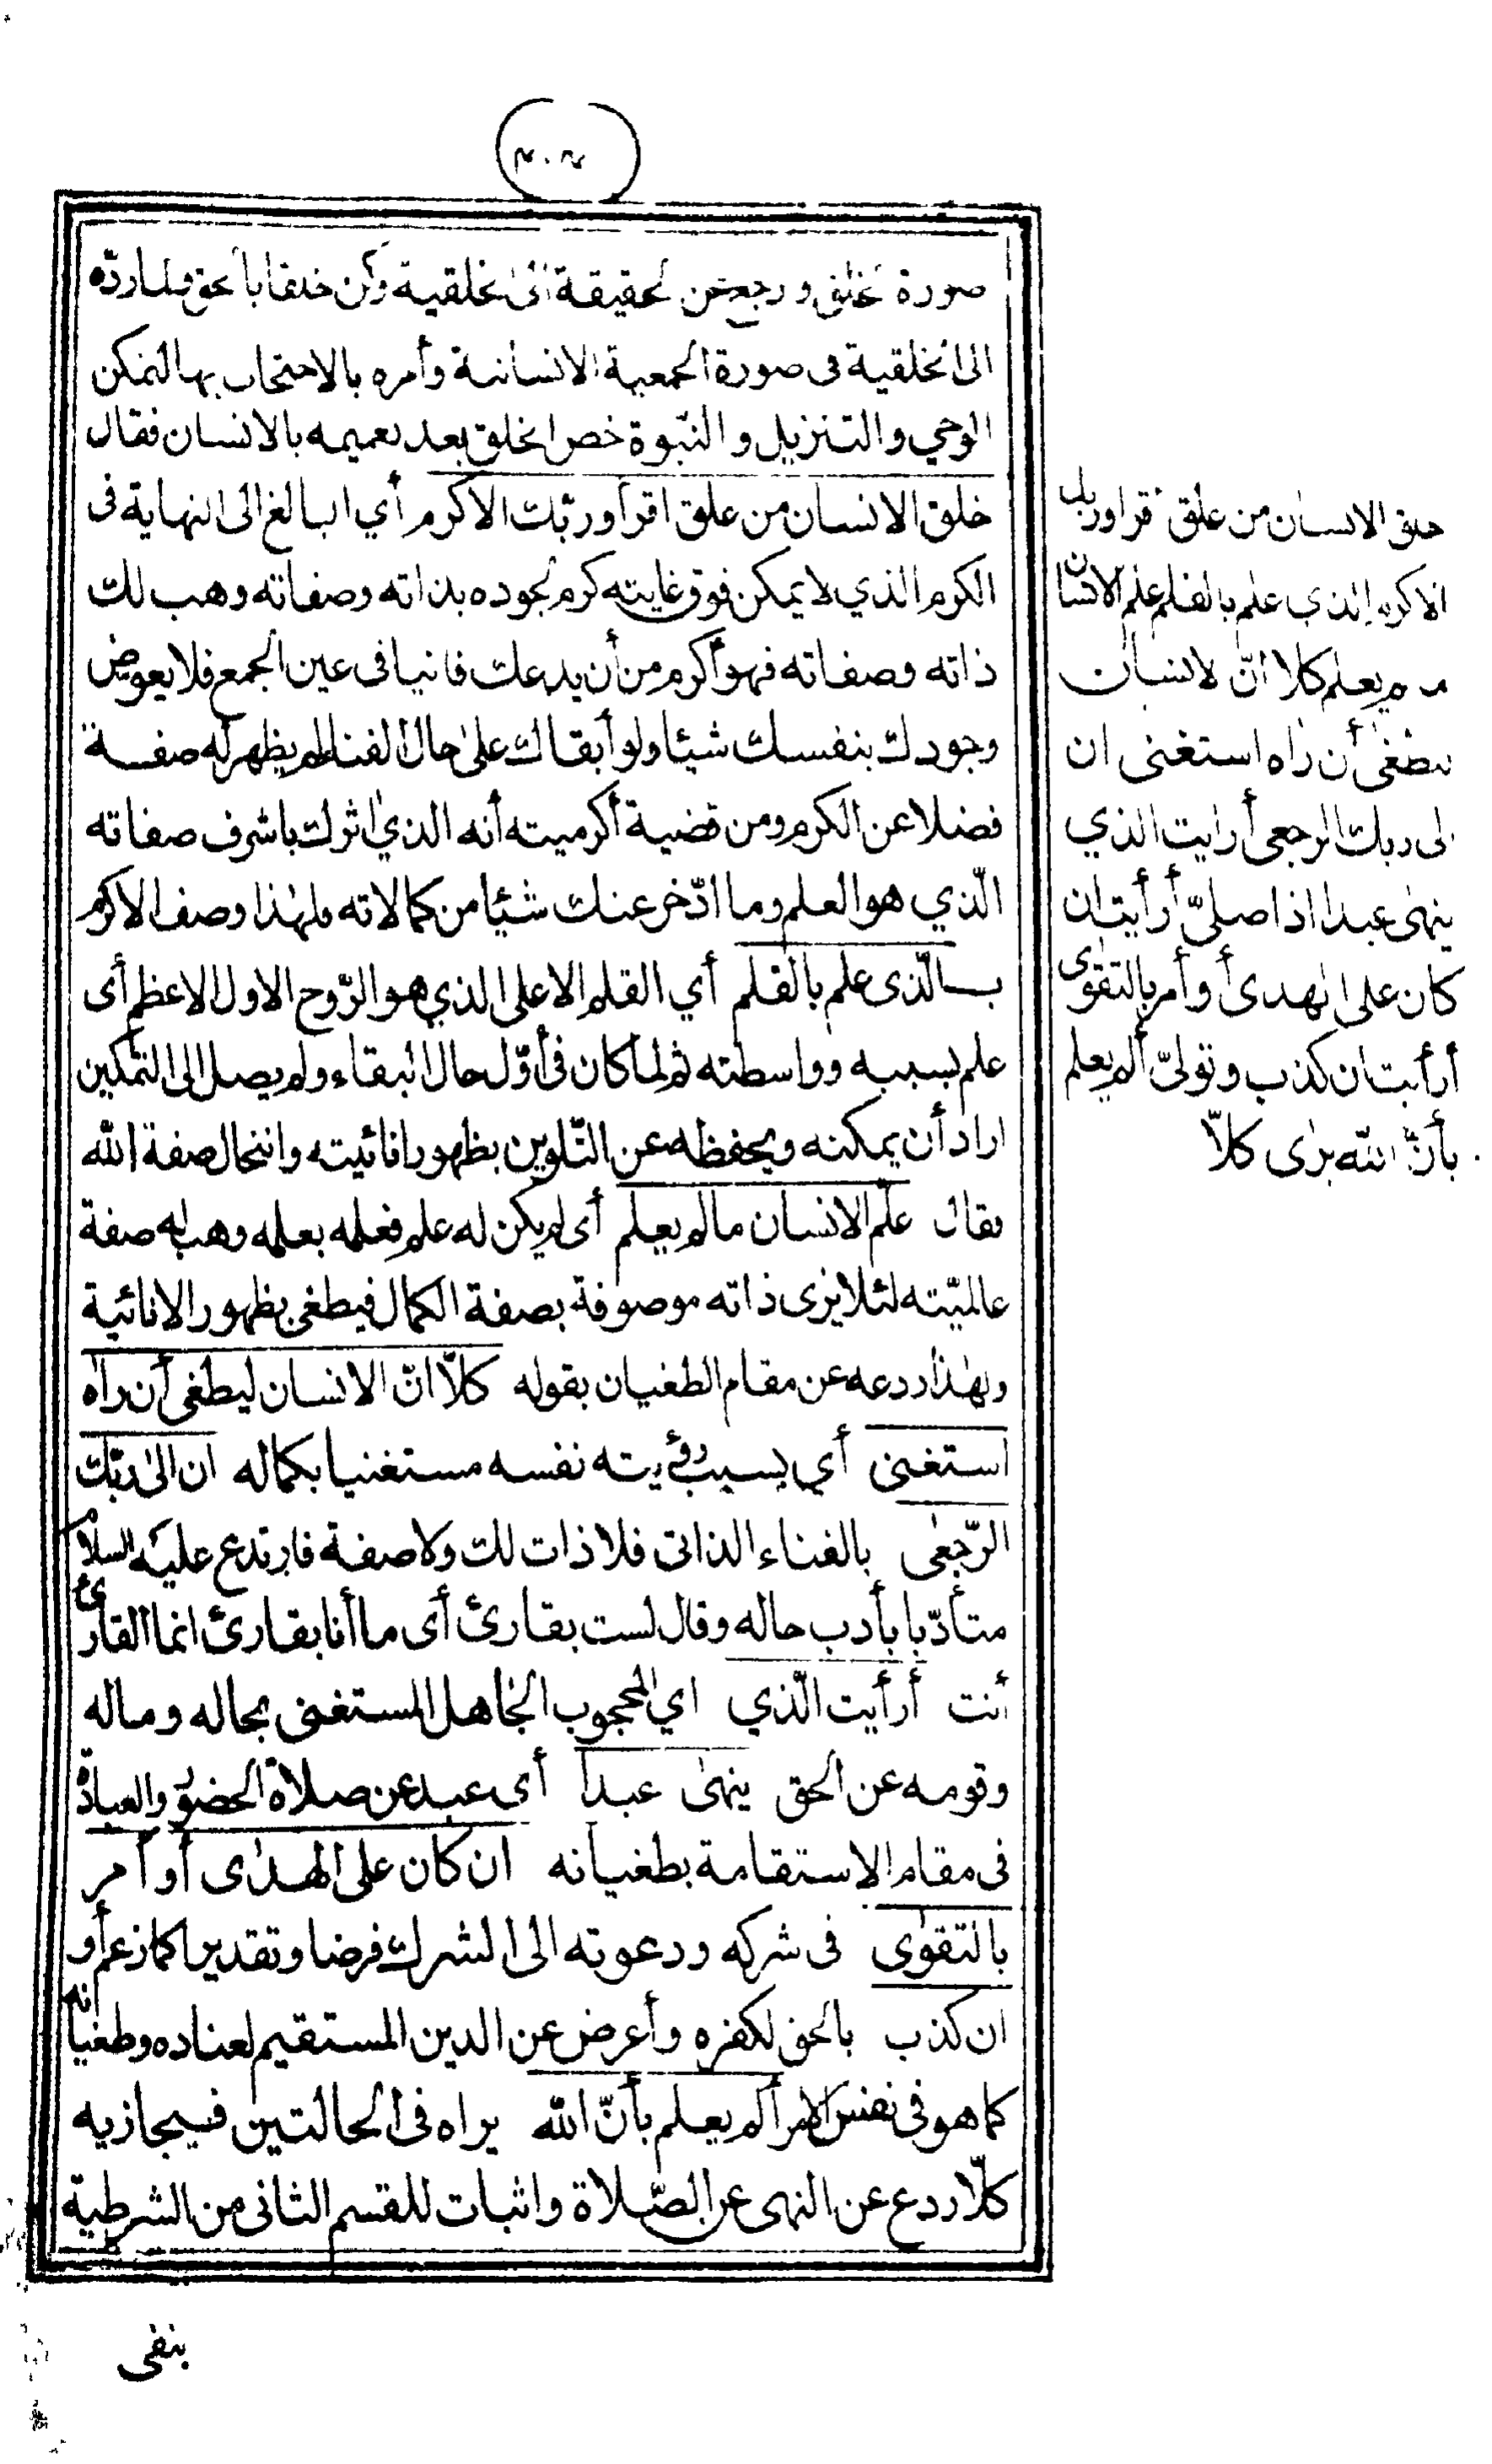 صورة الخلق ورجع من الحقيقة الى الخلقية وكان خلقا بالحق ولما رده
الى الخلقية فى صورة الجمعية الانسانية وأمره بالاحتجاب بها لتمكن
الوحي والتنزيل والنبّوة خص الخلق بعد تعميمه بالانسان فقال
خلق الانسان من علق اقرأ وربّك الاكرم أي البالغ الى النهاية فى
الكرم الذي لا يمكن فوق غايته كرم لجوده بذاته وصفاته وهب لك
ذاته وصفاته فهو أكرم من أن يدعك فانيا فى عين الجمع فلا يعوض
وجودك بنفسك شيئا ولو أبقاك على حال الفناء لم يظهر له صفة
فضلا عن الكرم ومن قضية أكرميته أنه الذي اثرك باشرف صفاته
الّذي هو العلم وما ادّخر عنك شيئا من كمالاته ولهذا وصف الاكرم
بـالّذى علم بالقلم أي القلم الاعلى الذي هو الرّوح الاول الاعظم أى
علم بسببه وواسطته ثم لما كان فى أوّل حال البقاء ولم يصل الى التمكين
اراد أن يمكنه ويحفظه عن التّلوين بظهور انائيته وانتحال صفة الله
فقال علّم الانسان ما لم يعلم أى لم يكن له علم فعلمه بعلمه وهب له صفة
عالميّته لئلا يرى ذاته موصوفة بصفة الكمال فيطغى بظهور الانائية
ولهذا ردعه عن مقام الطغيان بقوله كلّا انّ الانسان ليطغى أن راه
استغنى أي بسبب رؤيته نفسه مستغنيا بكماله ان الى ربّك
الرّجعى بالفناء الذاتى فلا ذات لك ولا صفة فارتدع عليه السلام
متأدّبا بأدب حاله وقال لست بقارئ أى ما أنا بقارئ انما القارئ
أنت أرأيت الّذي اي المحجوب الجاهل المستغنى بحاله وماله
وقومه عن الحق ينهى عبدا أى عبد عن صلاة الحضور والعبادة
فى مقام الاستقامة بطغيانه ان كان على الهدى أو أمر
بالتقوى فى شركه ودعوته الى الشرك فرضا وتقديرا كما زعم أو
ان كذب بالحق لكفره وأعرض عن الدين المستقيم لعناده وطغيانه
كما هو فى نفس الامر ألم يعلم بأنّ الله يراه فى الحالتين فيجازيه
كلّا ردع عن النهى عن الصّلاة واثبات للقسم الثانى من الشرطية
بنفى
خلق الانسان من علق اقرا وربك
الاكرم الذي علم بالقلم علم الانسان
ما لم يعلم كلا انّ الانسان
ليطغى أن راه استغنى ان
الى ربك الرجعى أرايت الذي
ينهى عبدا اذا صلىّ أرأيت ان
كان على الهدى أو أمر بالتقوى
أرأيت ان كذب وتولىّ ألم يعلم
بأنّ الله يرى كلاّ